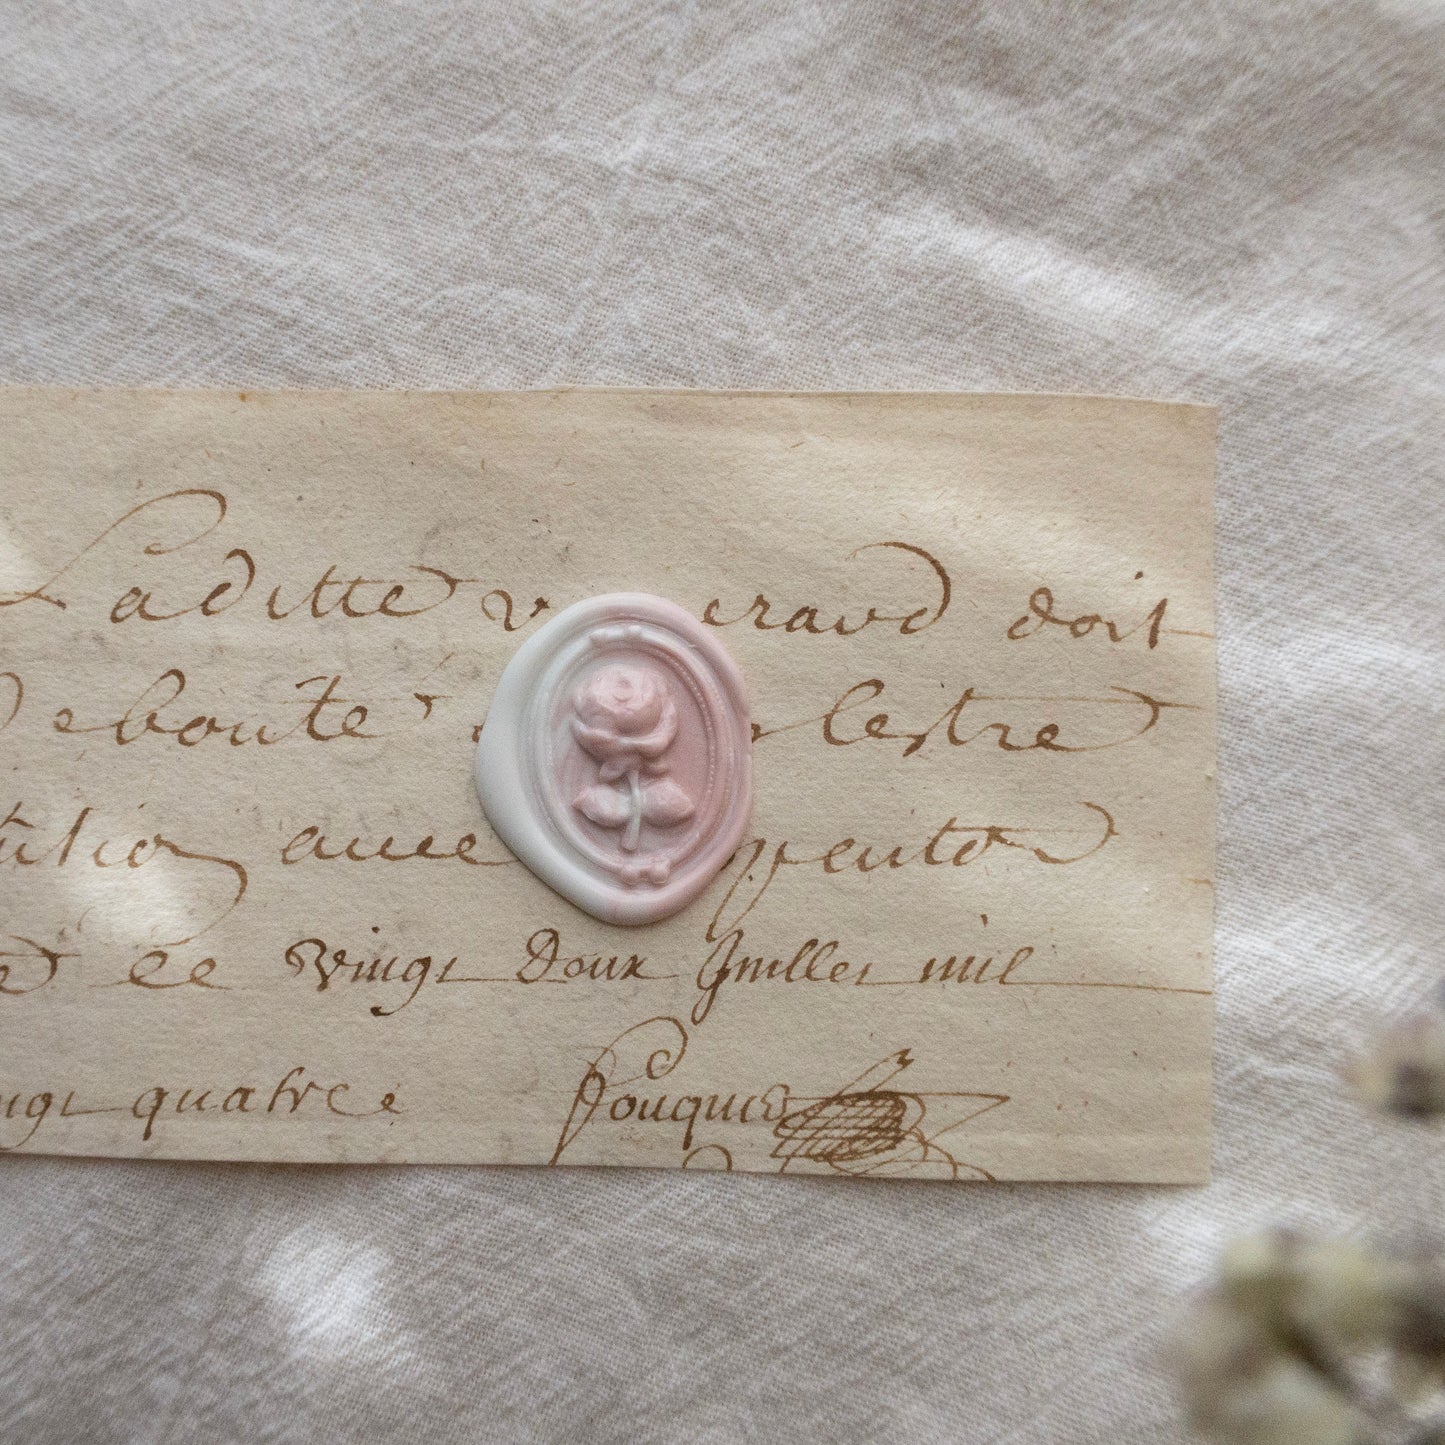 Laditte v eraud doit
debouté lestre
tution avec
ce vingt Deux Juillet mil
vingt quatre Fouquet